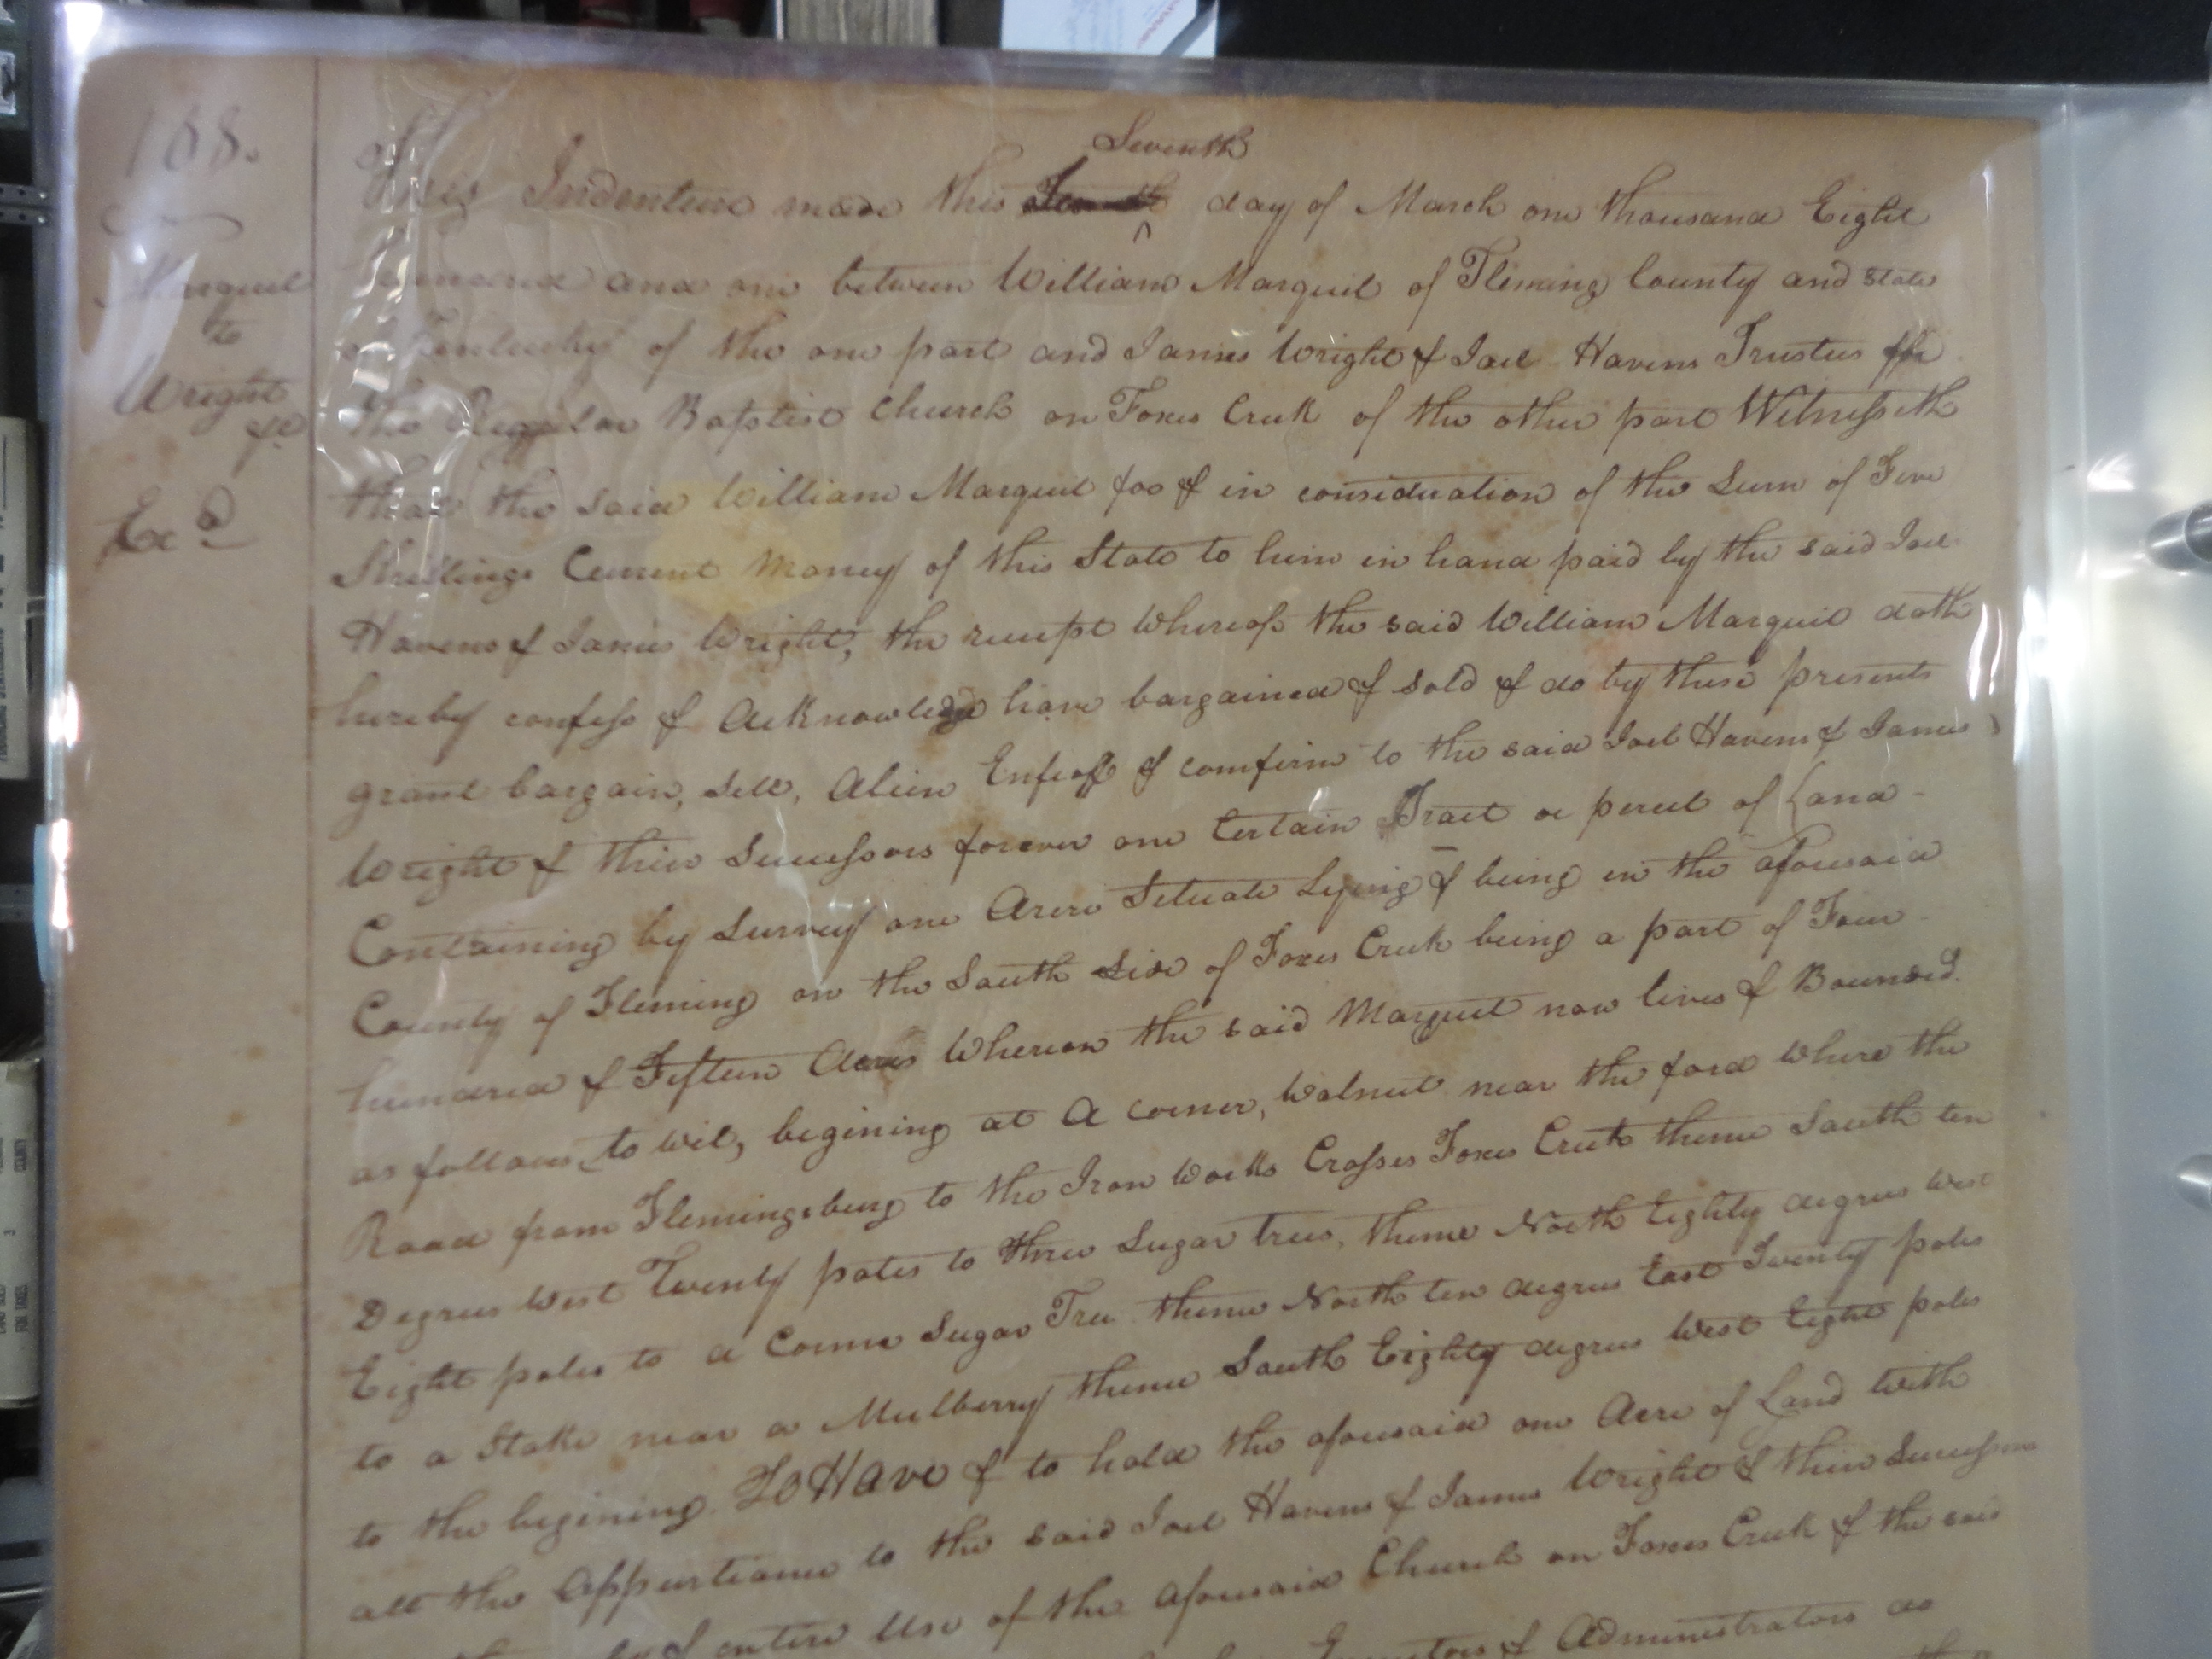 168.
Seventh
This Indenture made this day of March one thousand Eight
hundred and one between William Marquil of Fleming County and State
Marquil
of Kentucky of the one part and James Wright & Joel Havens Trustees for
to
the Regular Baptist Church on Foxes Creek of the other part Witnesseth
Wright
&c
that the said William Marquil for & in consideration of the Sum of Five
Exd
Shillings Current Money of this State to him in hand paid by the said Joel
Havens & James Wright, the receipt whereof the said William Marquil doth
hereby confess & acknowledge have bargained & sold & do by these presents
grant bargain, Sell, Alien Enfeoff & comfirm to the said Joel Havens & James
Wright & their Successors forever one Certain Tract or percel of Land
Containing by Survey one Acre Situate Lying & being in the aforesaid
County of Fleming on the South Side of Foxes Creek being a part of Four
hundred & Fifteen Acres Whereon the said Marquil now lives & Bounded.
as follows, to wit, begining at A corner, Walnut near the ford where the
Road from Flemingsburg to the Iron Works Crosses Foxes Creek thence South ten
Degrees West Twenty poles to three Sugar trees, thence North Eighty degrees West
Eight poles to a Corner Sugar Tree thence North ten degrees East Twenty poles
to a Stake near a Mulberry thence South Eighty degrees West Eight poles
to the begining. To Have & to hold the aforesaid one Acre of Land with
all the Appurtiance to the said Joel Havens & James Wright & their Successors
entire Use of the aforesaid Church on Foxes Creek & the said
Executors & Administrators do